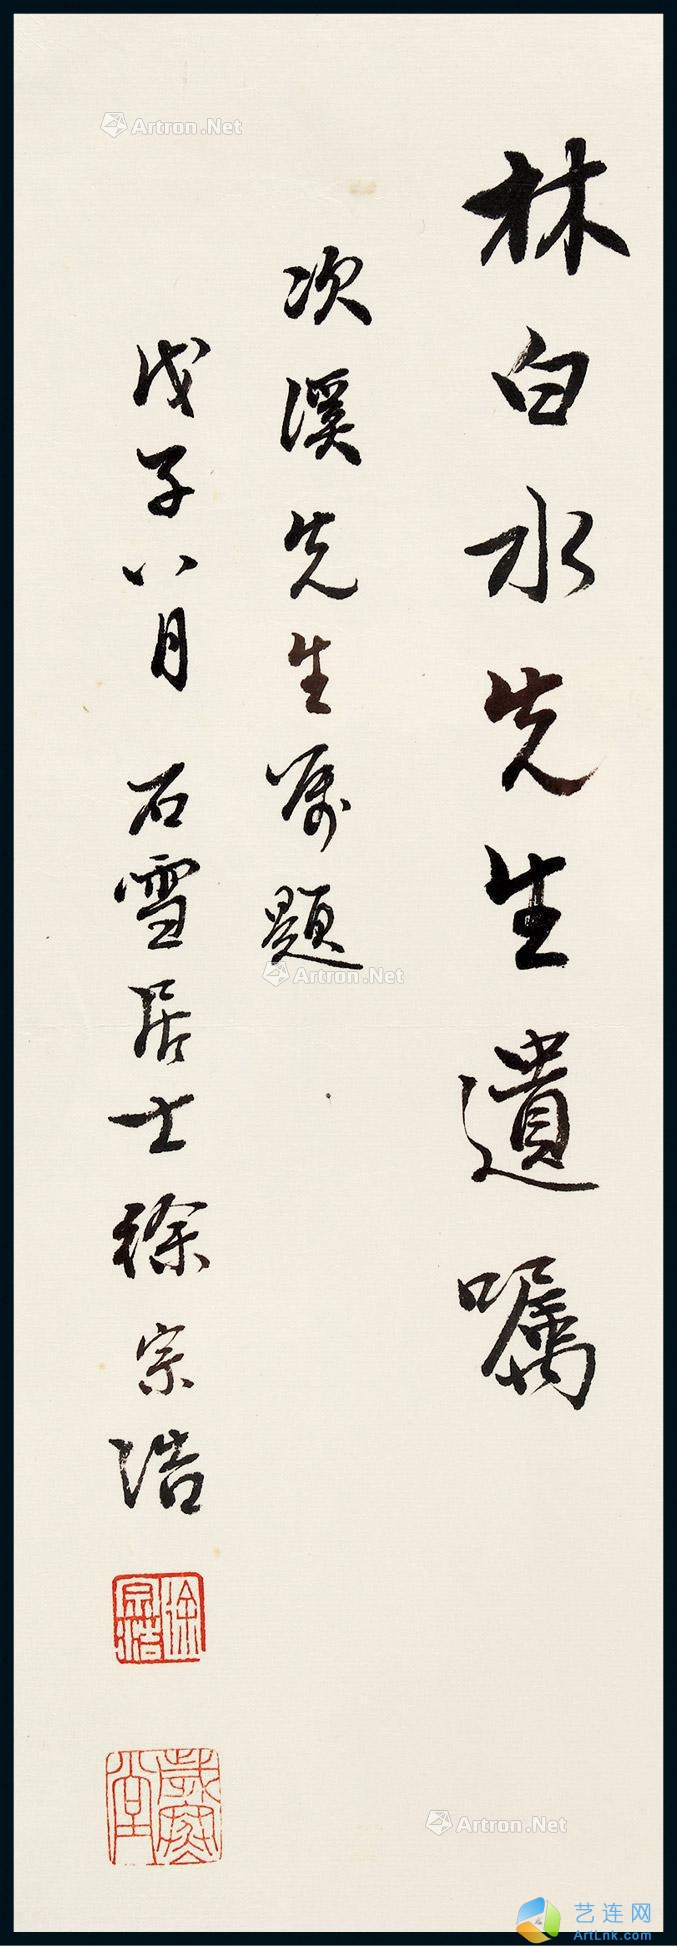 林白水先生遺嘱
次溪先生嘱題
戊子八月 石雪居士徐宗浩
徐宗浩
歲寒堂
Artron.Net
Artron.Net
Artron.Net
艺连网
ArtLnk.com